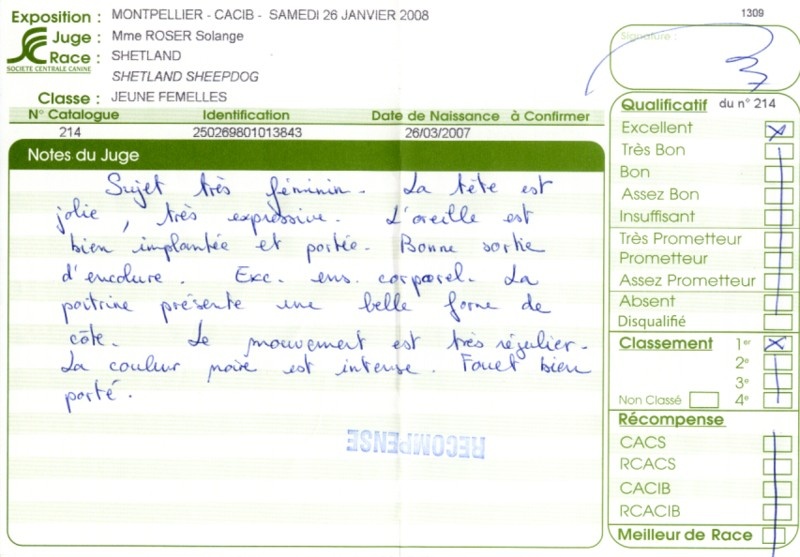 Exposition : MONTPELLIER - CACIB - SAMEDI 26 JANVIER 2008
Juge : Mme ROSER Solange
Race : SHETLAND
SHETLAND SHEEPDOG
SOCIETE CENTRALE CANINE
Classe : JEUNE FEMELLES
N° Catalogue Identification Date de Naissance à Confirmer
214 250269801013843 26/03/2007
Notes du Juge
Sujet très féminin. La tête est
jolie, très expressive. L'oreille est
bien implantée et portée. Bonne sortie
d'encolure. Exc. ens. corporel. La
poitrine présente une belle forme de
côte. Le mouvement est très régulier.
La couleur noire est intense. Fouet bien
porté.
RECOMPENSE
1309
Signature :
Qualificatif du n° 214
Excellent
Très Bon
Bon
Assez Bon
Insuffisant
Très Prometteur
Prometteur
Assez Prometteur
Absent
Disqualifié
Classement 1er
2e
3e
Non Classé 4e
Récompense
CACS
RCACS
CACIB
RCACIB
Meilleur de Race